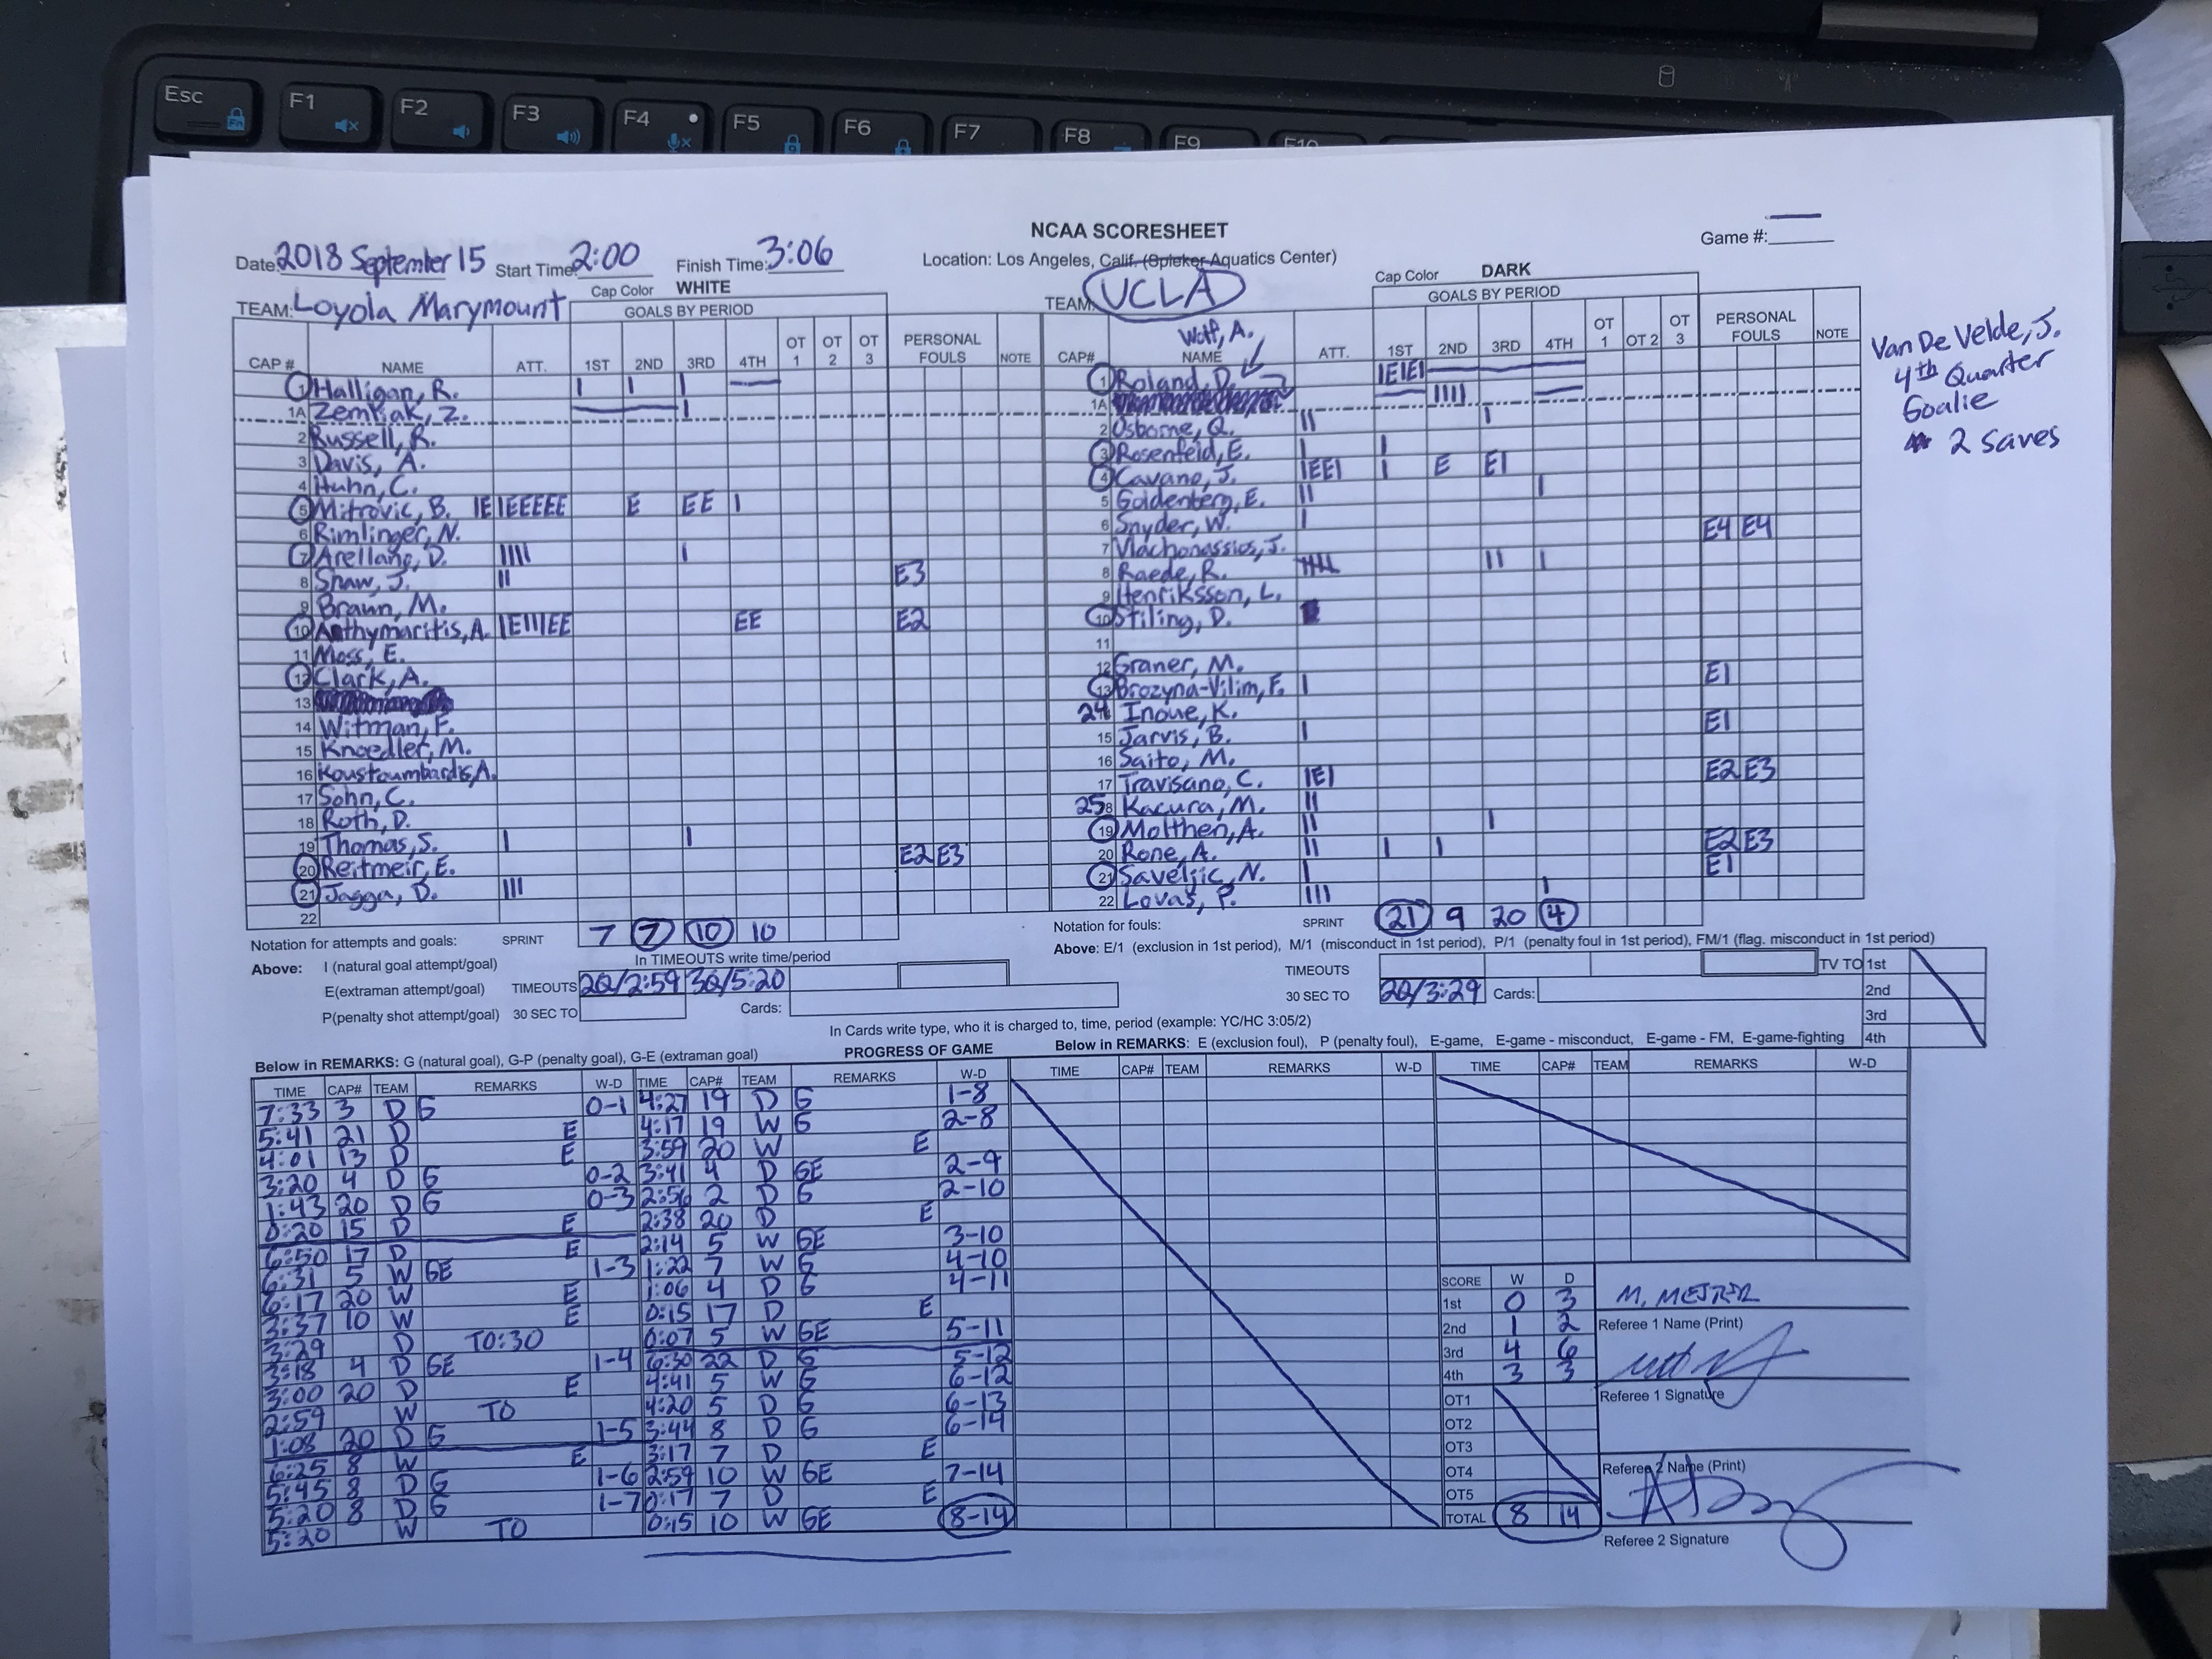 Esc F1 F2 F3 F4 F5 F6 F7 F8 F9 F10
NCAA SCORESHEET
Game #:
Date: 2018 September 15 Start Time: 2:00 Finish Time: 3:06 Location: Los Angeles, Calif. (Spieker Aquatics Center)
Cap Color WHITE Cap Color DARK
TEAM: Loyola Marymount GOALS BY PERIOD TEAM: UCLA GOALS BY PERIOD
CAP # NAME ATT. 1ST 2ND 3RD 4TH OT 1 OT 2 OT 3 PERSONAL FOULS NOTE
1 Halligan, R. I I I
1A Zemkak, Z. I
2 Russell, R.
3 Davis, A.
4 Huhn, C.
5 Mitrovic, B. IEIEEEEE E EE I
6 Rimlinger, N.
7 Arellano, D. IIII I
8 Shaw, J. II E3
9 Braun, M.
10 Anthymaritis, A. IEIIIEE EE E2
11 Moss, E.
12 Clark, A.
13
14 Witman, F.
15 Knoedler, M.
16 Koustoumbardis, A.
17 Sohn, C.
18 Roth, D.
19 Thomas, S. I I
20 Reitmeir, E. E2 E3
21 Jagga, D. III
22
SPRINT 7 7 10 10
Wolf, A.
CAP# NAME ATT. 1ST 2ND 3RD 4TH OT 1 OT 2 OT 3 PERSONAL FOULS NOTE
1 Roland, D. IEIEI
1A IIII
2 Osborne, Q. II I
3 Rosenfeld, E. I I
4 Cavano, J. IEEI I E EI
5 Goldenberg, E. II I
6 Snyder, W. I
7 Vlachonassios, J. E4 E4
8 Raede, R. IIIII II I
9 Henriksson, L.
10 Stiling, D.
11
12 Graner, M.
13 Brozyna-Vilim, F. I E1
24 Inoue, K.
15 Jarvis, B. I E1
16 Saito, M.
17 Travisano, C. IEI E2 E3
258 Kacura, M. II
19 Molthen, A. II I
20 Rone, A. II I I E2 E3
21 Saveljic, N. I E1
22 Lovas, P. III I
SPRINT 21 9 20 4
Van De Velde, J.
4th Quarter
Goalie
2 saves
Notation for attempts and goals:
Above: I (natural goal attempt/goal)
E(extraman attempt/goal)
P(penalty shot attempt/goal)
In TIMEOUTS write time/period
TIMEOUTS 2Q/2:59 3Q/5:20
30 SEC TO Cards:
Notation for fouls:
Above: E/1 (exclusion in 1st period), M/1 (misconduct in 1st period), P/1 (penalty foul in 1st period), FM/1 (flag. misconduct in 1st period)
TIMEOUTS TV TO 1st
30 SEC TO 2Q/3:29 Cards: 2nd
3rd
4th
In Cards write type, who it is charged to, time, period (example: YC/HC 3:05/2)
Below in REMARKS: G (natural goal), G-P (penalty goal), G-E (extraman goal) PROGRESS OF GAME Below in REMARKS: E (exclusion foul), P (penalty foul), E-game, E-game - misconduct, E-game - FM, E-game-fighting
TIME CAP# TEAM REMARKS W-D
7:33 3 D G 0-1
5:41 21 D E
4:01 13 D E
3:20 4 D G 0-2
1:43 20 D G 0-3
0:20 15 D E
6:50 17 D E
6:31 5 W GE 1-3
6:17 20 W E
3:37 10 W E
3:29 D TO:30
3:18 4 D GE 1-4
3:00 20 D E
2:59 W TO
1:08 20 D G 1-5
6:25 8 W E
5:45 8 D G 1-6
5:20 8 D G 1-7
5:20 W TO
TIME CAP# TEAM REMARKS W-D
4:27 19 D G 1-8
4:17 19 W G 2-8
3:59 20 W E
3:41 4 D GE 2-9
2:56 2 D G 2-10
2:38 20 D E
2:14 5 W GE 3-10
1:22 7 W G 4-10
1:06 4 D G 4-11
0:15 17 D E
0:07 5 W GE 5-11
6:30 22 D G 5-12
4:41 5 W G 6-12
4:20 5 D G 6-13
3:44 8 D G 6-14
3:17 7 D E
2:59 10 W GE 7-14
0:17 7 D E
0:15 10 W GE 8-14
TIME CAP# TEAM REMARKS W-D
TIME CAP# TEAM REMARKS W-D
SCORE W D
1st 0 3
2nd 1 2
3rd 4 6
4th 3 3
OT1
OT2
OT3
OT4
OT5
TOTAL 8 14
Referee 1 Name (Print)
Referee 1 Signature
Referee 2 Name (Print)
Referee 2 Signature